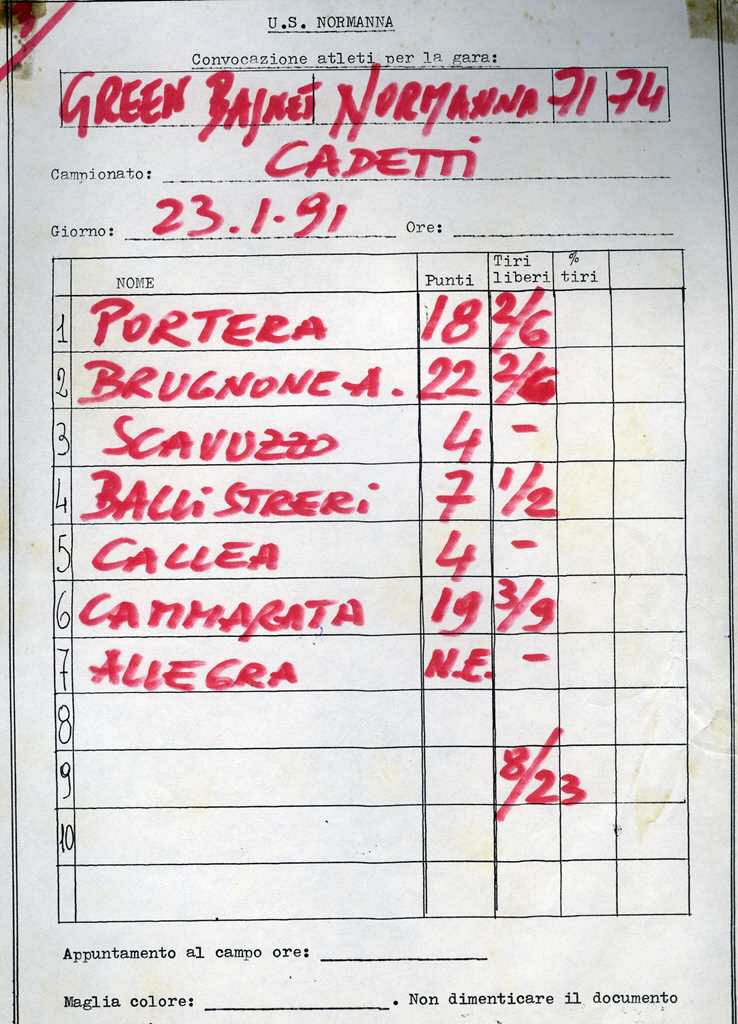 U.S. NORMANNA
Convocazione atleti per la gara:
GREEN BASKET NORMANNA 71 74
Campionato: CADETTI
Giorno: 23.1.91 Ore:
NOME Punti Tiri liberi % tiri
1 PORTERA 18 2/6
2 BRUGNONE A. 22 2/6
3 SCAVUZZO 4 -
4 BALLISTRERI 7 1/2
5 CALLEA 4 -
6 CAMMARATA 19 3/9
7 ALLEGRA N.E. -
8
9 8/23
10
Appuntamento al campo ore:
Maglia colore: . Non dimenticare il documento